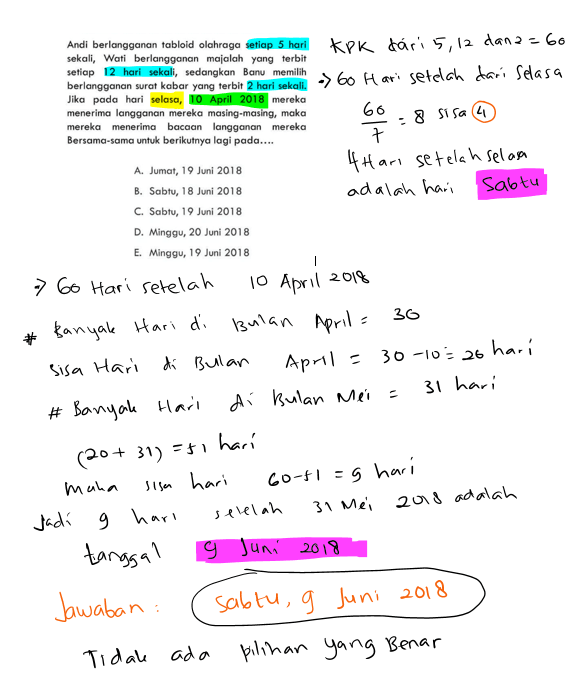 Andi berlangganan tabloid olahraga setiap 5 hari
sekali, Wati berlangganan majalah yang terbit
setiap 12 hari sekali, sedangkan Banu memilih
berlangganan surat kabar yang terbit 2 hari sekali.
Jika pada hari selasa, 10 April 2018 mereka
menerima langganan mereka masing-masing, maka
mereka menerima bacaan langganan mereka
Bersama-sama untuk berikutnya lagi pada....
A. Jumat, 19 Juni 2018
B. Sabtu, 18 Juni 2018
C. Sabtu, 19 Juni 2018
D. Minggu, 20 Juni 2018
E. Minggu, 19 Juni 2018
KPK dari 5, 12 dan 2 = 60
→ 60 Hari setelah dari Selasa
60/7 = 8 sisa 4
4 Hari setelah selasa
adalah hari Sabtu
→ 60 Hari setelah 10 April 2018
# Banyak Hari di Bulan April = 30
Sisa Hari di Bulan April = 30 - 10 = 20 hari
# Banyak Hari di Bulan Mei = 31 hari
(20 + 31) = 51 hari
maka sisa hari 60 - 51 = 9 hari
Jadi 9 hari setelah 31 Mei 2018 adalah
tanggal 9 Juni 2018
Jawaban : Sabtu, 9 Juni 2018
Tidak ada pilihan yang Benar